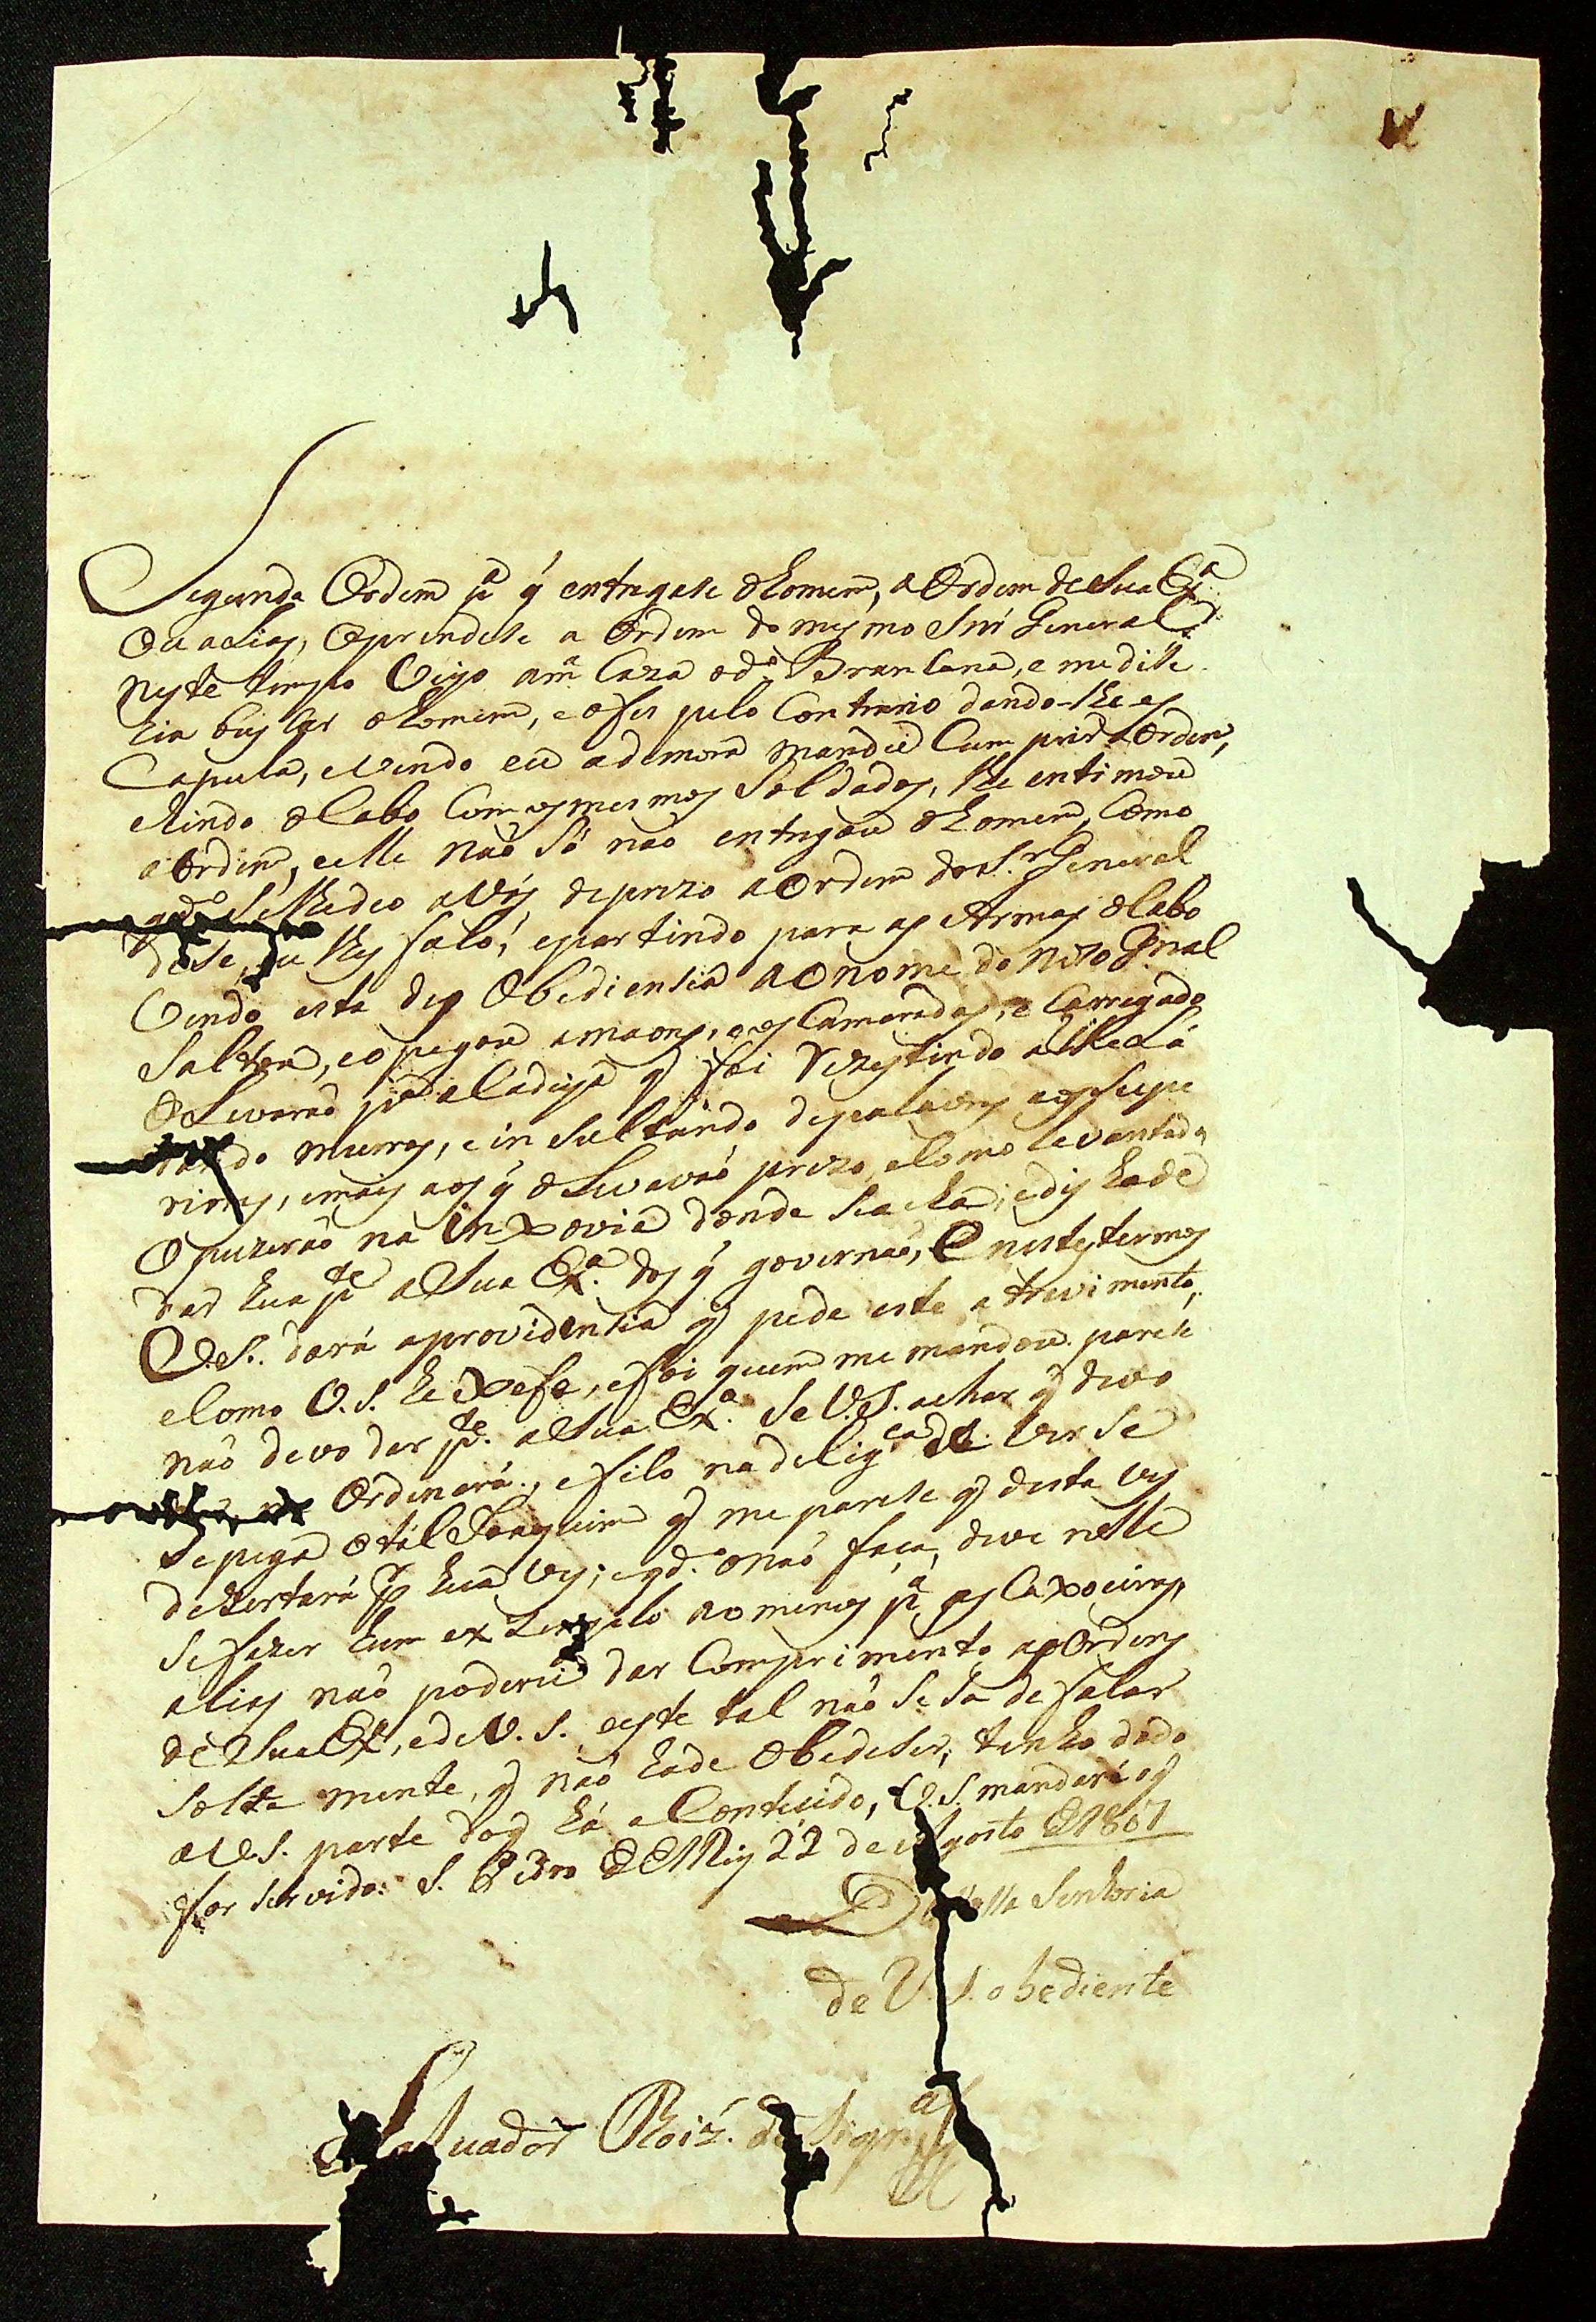 Segunda Ordem pª q̃ entregase o homem, a Ordem de Sua Exª
Ou aliaz, Oprendese a Ordem do mesmo Snr̃ General
neste tempo Veyo am.ª Caza od.º Bran Cana, e me dise
hia buscar o homem, e o fes pelo Contrario dando-lhe es
Capula, e vendo eu a demora mandei Cumprir a Ordem,
e hindo o Cabo Com os mesmos Soldados, lhe entimou
a Ordem, e elle não Só nao entregou o homem, Como
qd.º Se lhe deo a Vós de prezo a Ordem do S.r General
dise, eu lhes falo, e partindo para as Armas o Cabo
Vendo esta des Obediensia ao nome do nosso Gnal
Saltou, e o pegou a maons, e os Camaradas, e Carregado
O Levarao pª a Cadeya q̃ foi Rezestindo athe Lá
dando murros, e in Sultando de palavras aos Supe
riores, e mais aos q̃ o Levavão prezo, e Como levantado
O puzerão na Inxovia donde Se acha, e dis hade
dar hua p.te a Sua Exª. dos q̃ governão, E nestes termos
V.S. dará a providensia q̃ pede este atrevimento,
e Como V.S. he Xefe, e foi quem me mandou parese
não devo dar p.te. a Sua Exª. Se V.S. achar q̃ devo
Ordenará, e filo na delig.ca de ver Se
Se pega o tal Joaquim q̃ me parese q̃ desta ves
dezertará p hua ves; e qd.º o não faça, deve nelle
Se fazer hum exzemplo ao menos pª as Caxoeiras,
alias não poderei dar Comprimento as Ordens
de Sua Exª, e de V.S. e este tal não Se Sa de falar
Solta mente, q̃ não hade Obedeser, tenho dado
a V.S. parte do q̃ há a Contesido, V.S. mandará o q̃
for servido. S. Pedro de Alcª 22 de Agosto de 1807
De Vossa Senhoria
de V.S. obediente
Salvador Roiz. de Siqrª